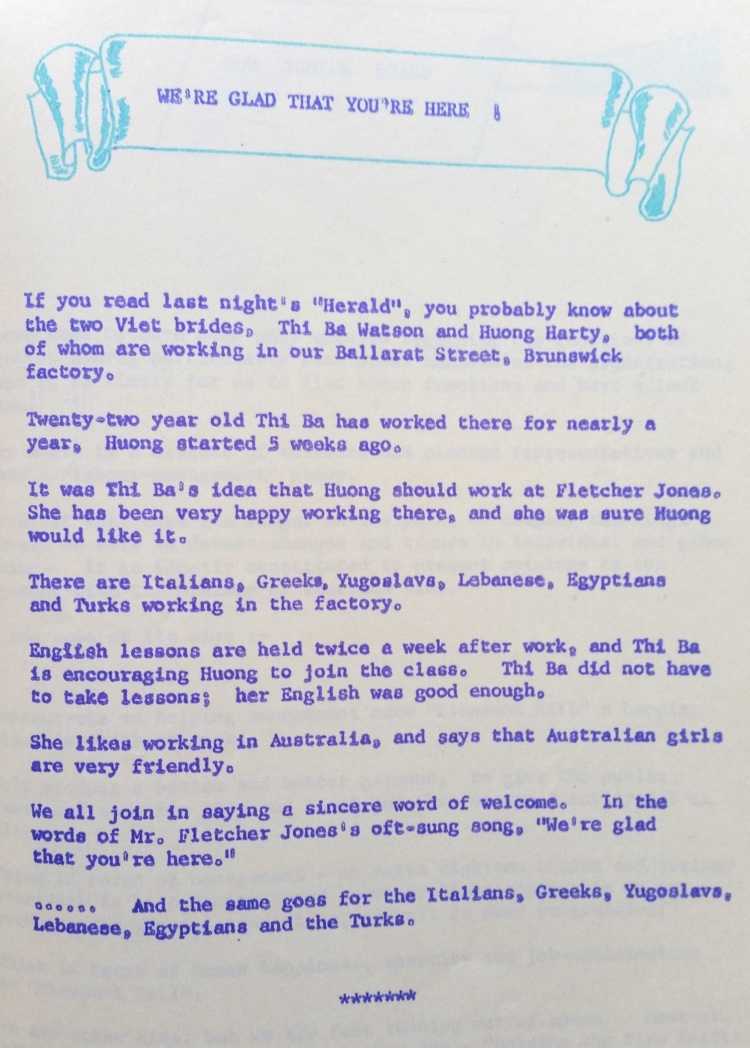 WE'RE GLAD THAT YOU'RE HERE !
If you read last night's "Herald", you probably know about
the two Viet brides, Thi Ba Watson and Huong Harty, both
of whom are working in our Ballarat Street, Brunswick
factory.
Twenty-two year old Thi Ba has worked there for nearly a
year, Huong started 5 weeks ago.
It was Thi Ba's idea that Huong should work at Fletcher Jones.
She has been very happy working there, and she was sure Huong
would like it.
There are Italians, Greeks, Yugoslavs, Lebanese, Egyptians
and Turks working in the factory.
English lessons are held twice a week after work, and Thi Ba
is encouraging Huong to join the class. Thi Ba did not have
to take lessons; her English was good enough.
She likes working in Australia, and says that Australian girls
are very friendly.
We all join in saying a sincere word of welcome. In the
words of Mr. Fletcher Jones's oft-sung song, "We're glad
that you're here."
....... And the same goes for the Italians, Greeks, Yugoslavs,
Lebanese, Egyptians and the Turks.
*******